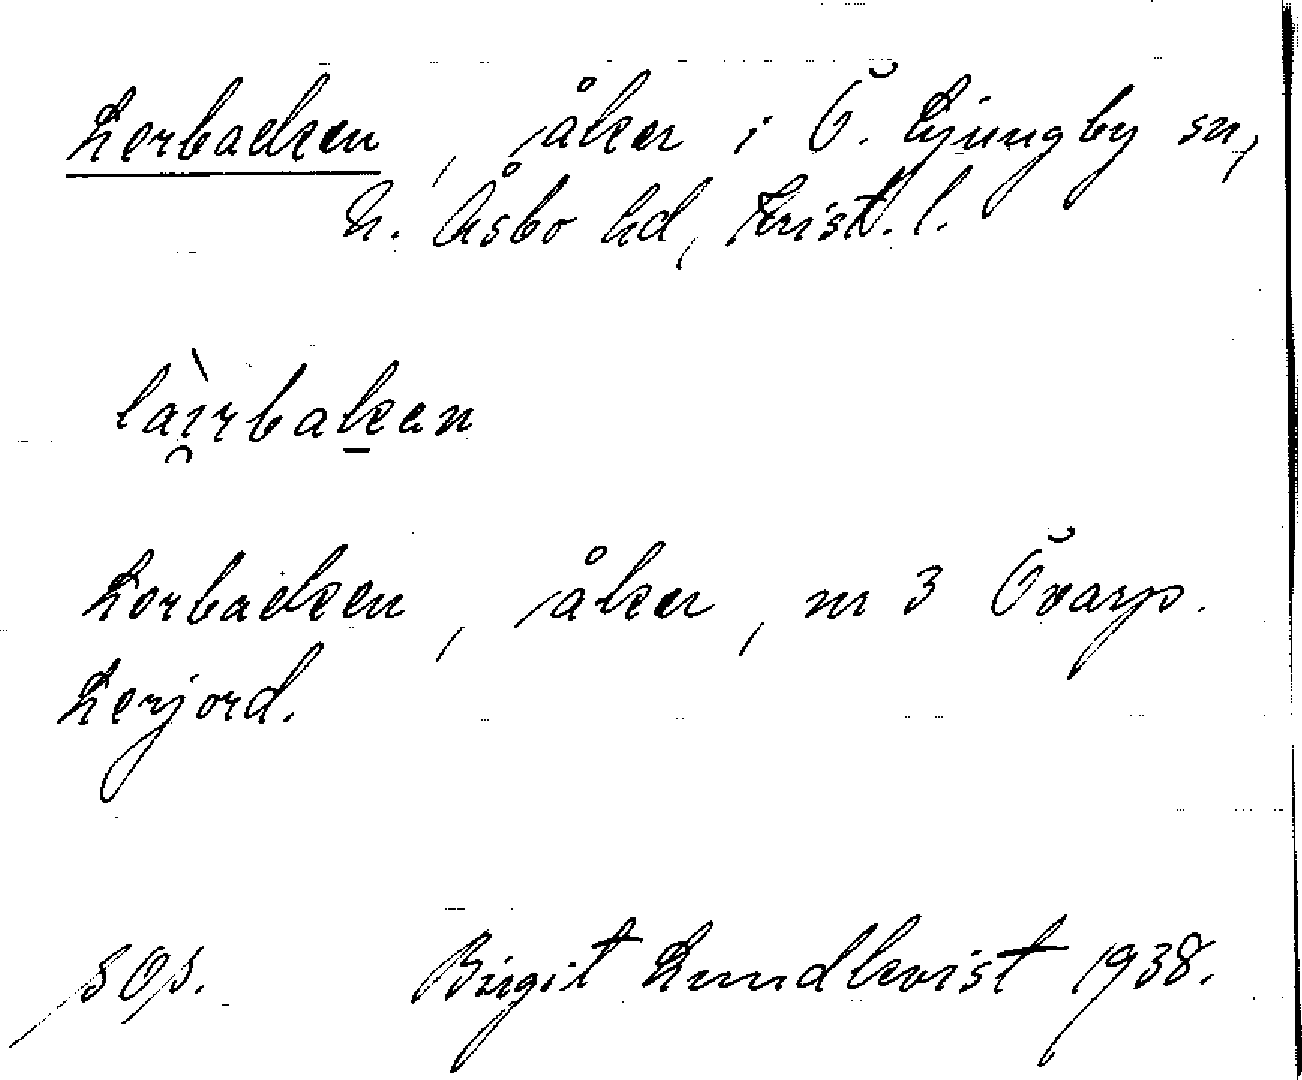 Lerbacken, åker i Ö. Ljungby sn,
N. Åsbo hd, Krist. l.
làırbakan
Lerbacken, åker, nr 3 Övarp.
Lerjord.
Birgit Lundkvist 1938.